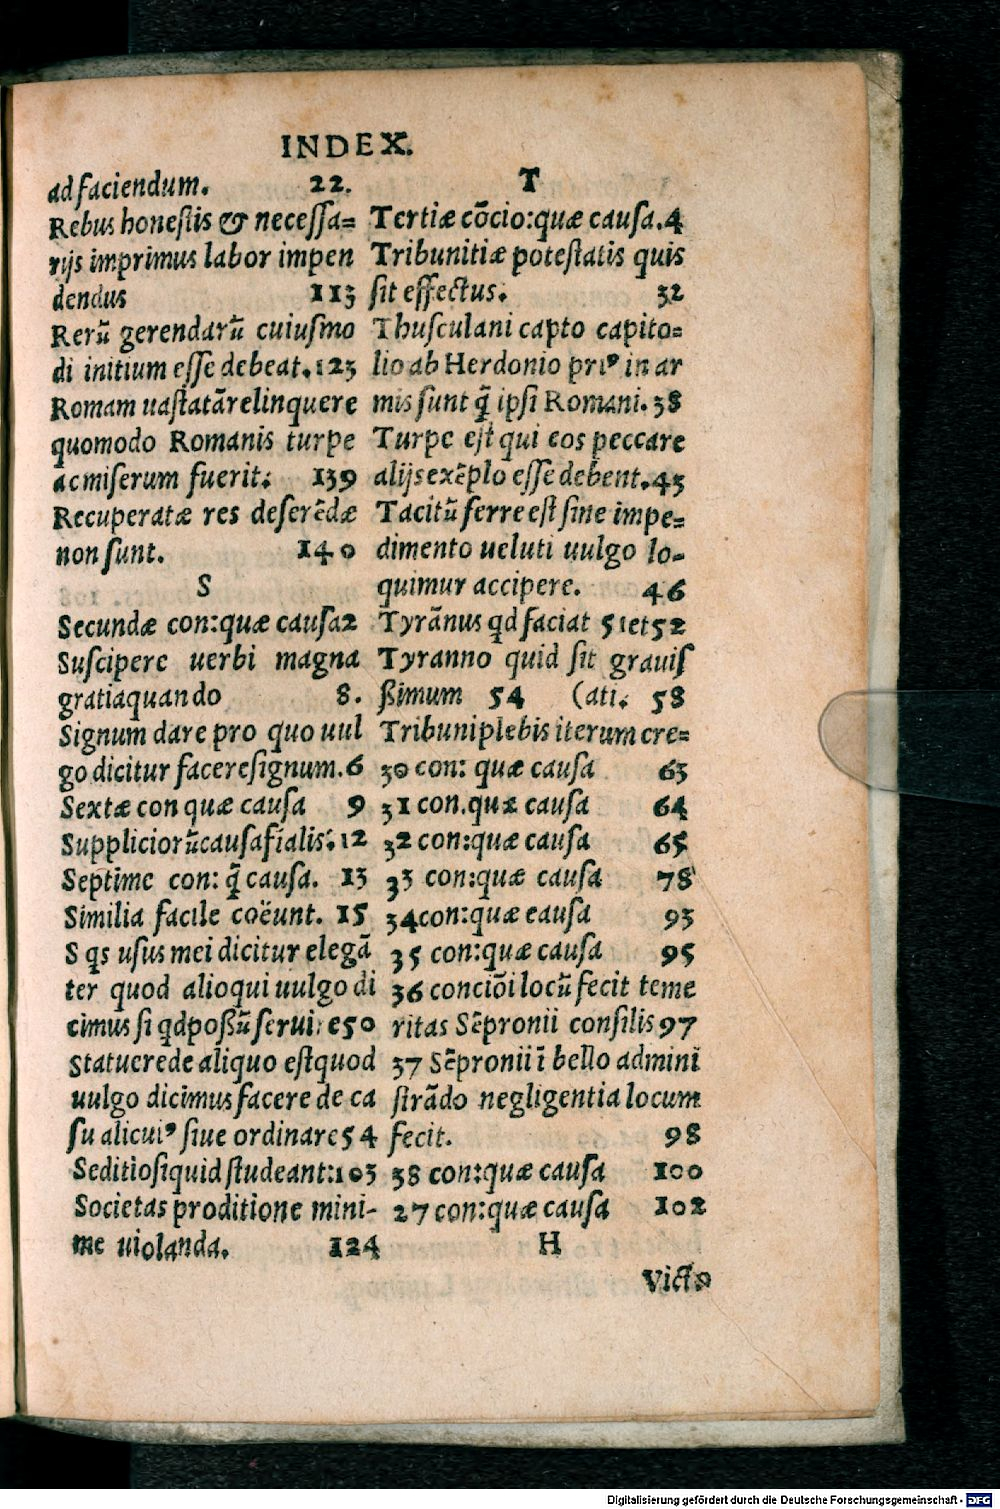 INDEX.
ad faciendum. 22.
Rebus honestis & necessa=
rijs imprimus labor impen
dendus 113
Rerū gerendarū cuiusmo
di initium esse debeat. 123
Romam uastatā relinquere
quomodo Romanis turpe
ac miserum fuerit. 139
Recuperatæ res deserēdæ
non sunt. 140
S
Secundæ con:quæ causa 2
Suscipere uerbi magna
gratia quando 8.
Signum dare pro quo uul
go dicitur facere signum. 6
Sextæ con quæ causa 9
Suppliciorū causa fīalis: 12
Septime con: q̄ causa. 13
Similia facile coëunt. 15
S qs usus mei dicitur elegā
ter quod alioqui uulgo di
cimus si qd poßū serui:e 50
Statuere de aliquo est quod
uulgo dicimus facere de ca
su alicuiꝰ siue ordinare 54
Seditiosi quid studeant: 103
Societas proditione mini-
me uiolanda. 124
T
Tertiæ cōcio:quæ causa. 4
Tribunitiæ potestatis quis
sit effectus. 32
Thusculani capto capito=
lio ab Herdonio priꝰ in ar
mis sunt q̄ ipsi Romani. 38
Turpe est qui eos peccare
alijs exēplo esse debent. 43
Tacitū ferre est sine impe=
dimento ueluti uulgo lo=
quimur accipere. 46
Tyrānus qd faciat 51 et 52
Tyranno quid sit grauis
ßimum 54 (ati. 58
Tribuni plebis iterum cre=
30 con: quæ causa 63
31 con.quæ causa 64
32 con:quæ causa 65
33 con:quæ causa 78
34 con:quæ eausa 93
35 con:quæ causa 95
36 conciōi locū fecit teme
ritas Sēpronii consilis 97
37 Sēpronii ī bello admini
strādo negligentia locum
fecit. 98
38 con:quæ causa 100
27 con:quæ causa 102
H
Victo
Digitalisierung gefördert durch die Deutsche Forschungsgemeinschaft - DFG